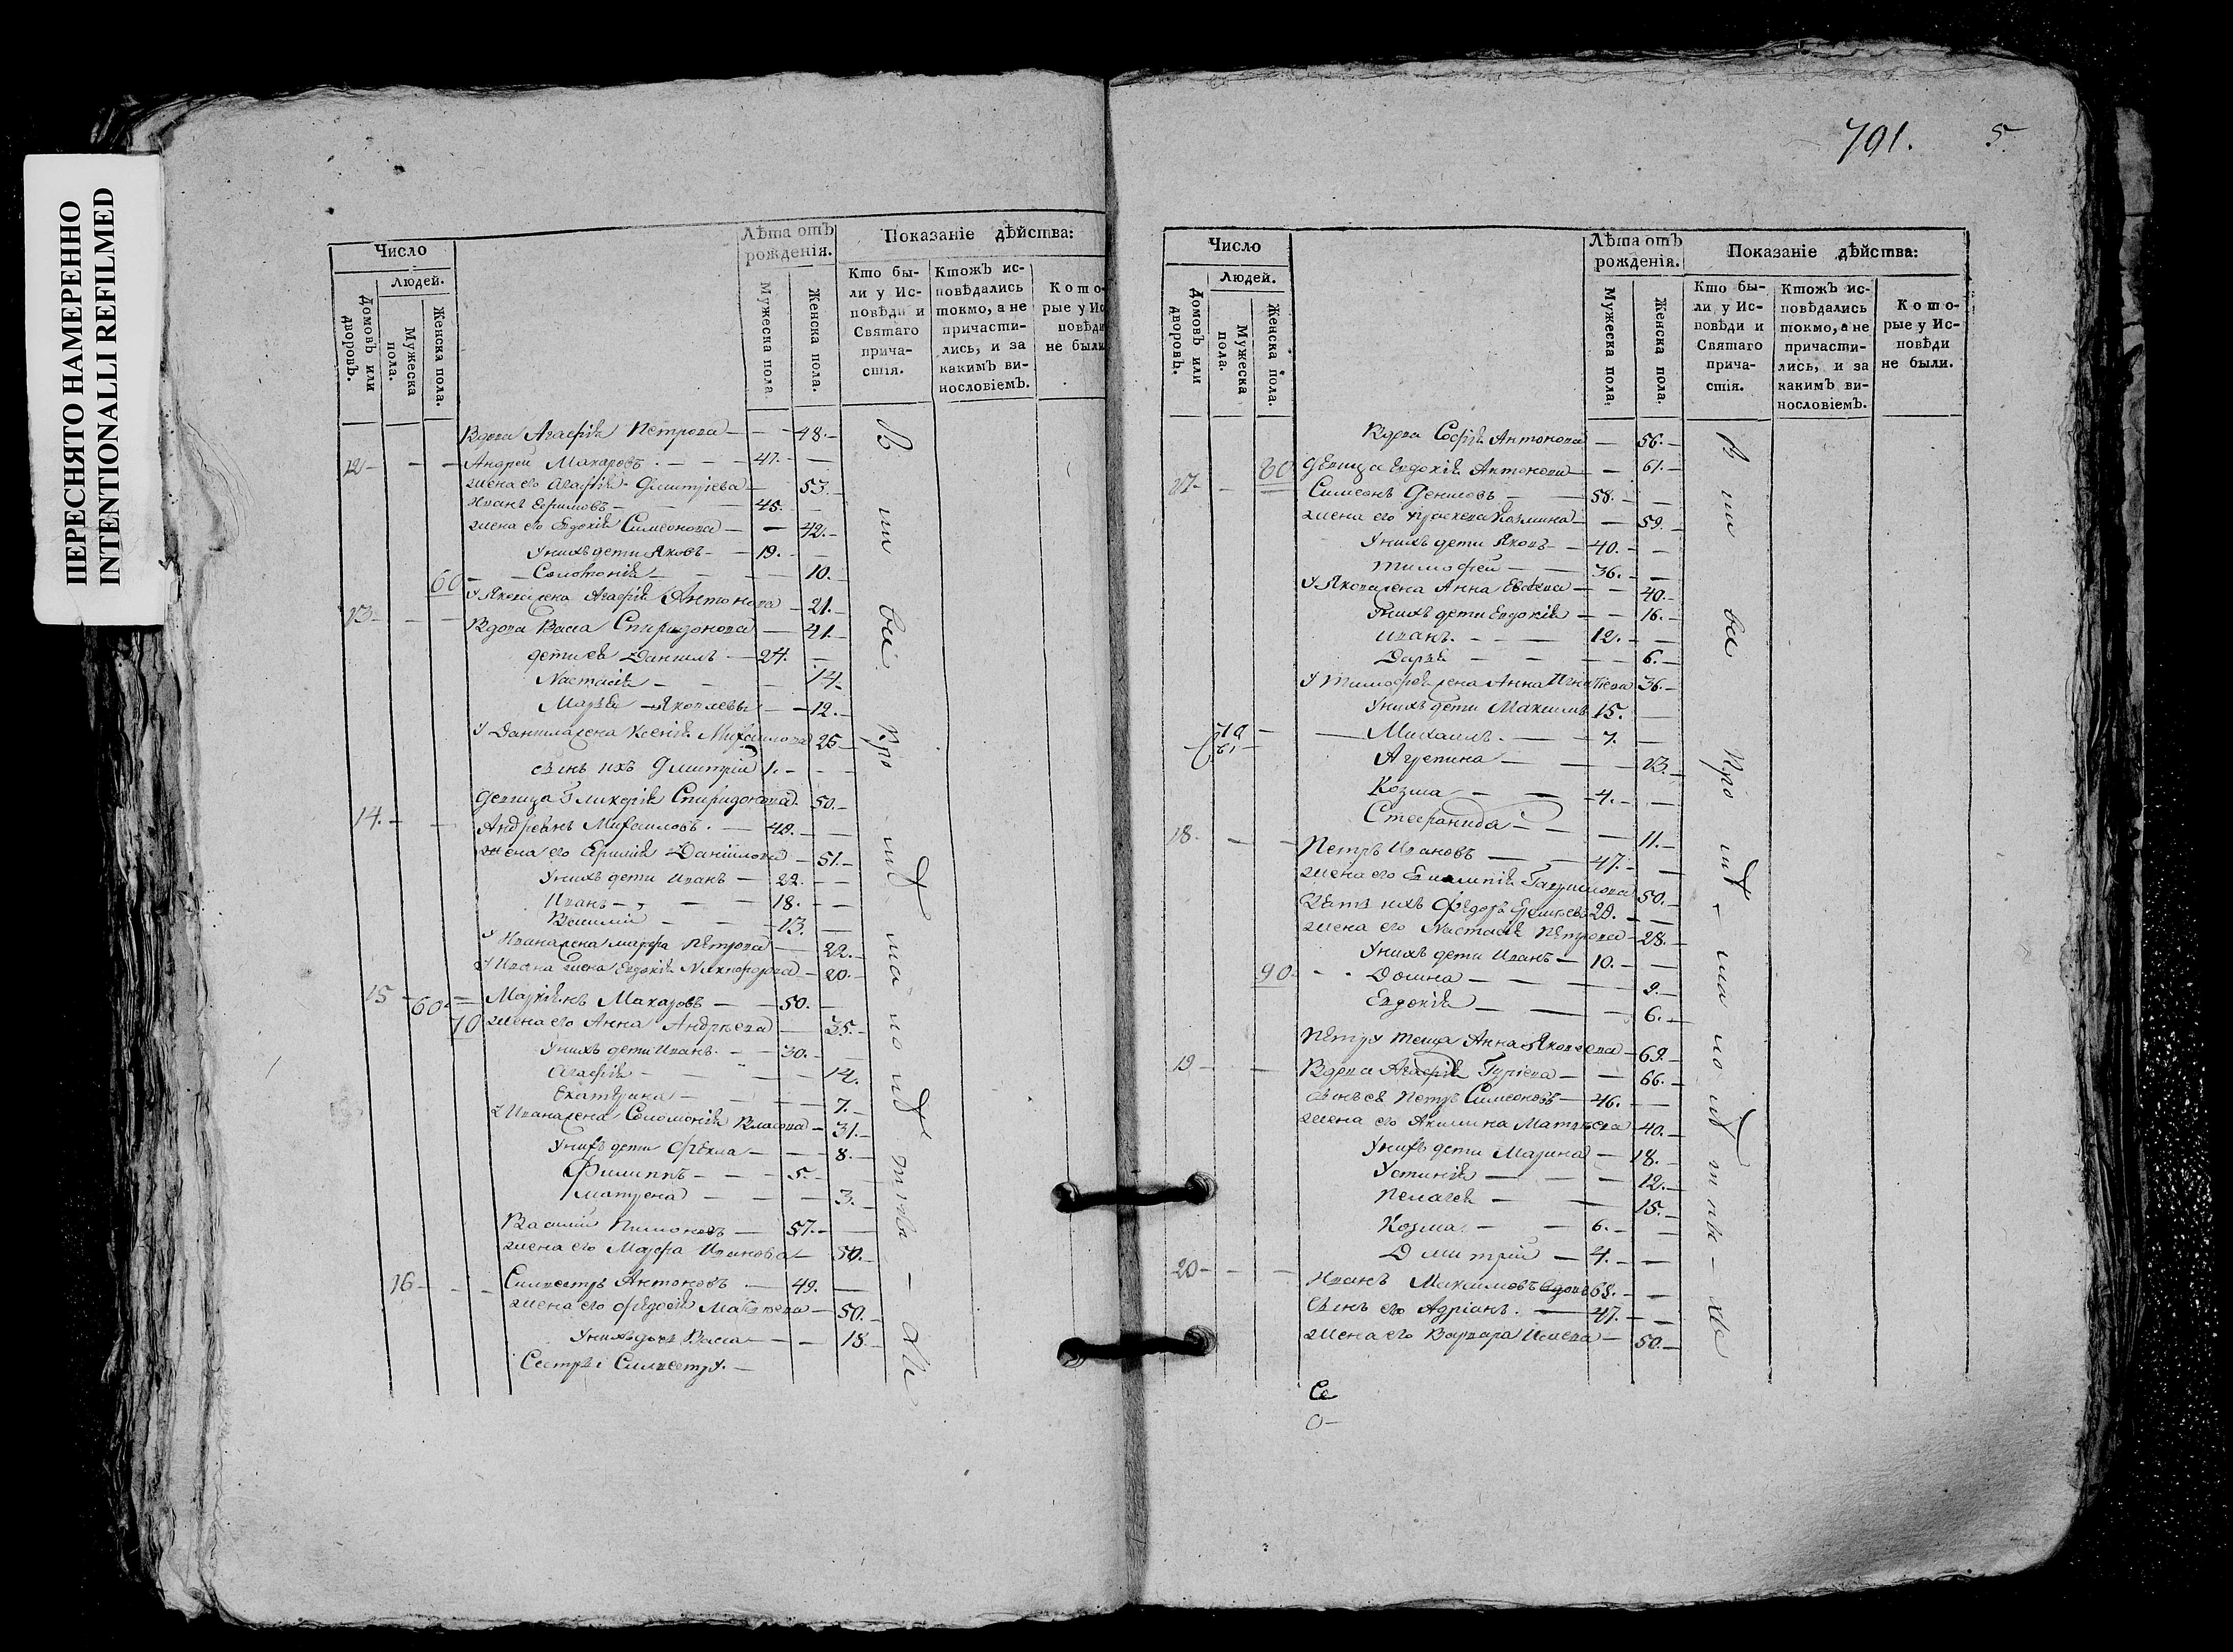 ПЕРЕСНЯТО НАМЕРЕННО
INTENTIONALLI REFILMED
Число
Лѣта отъ рожденія.
Показаніе дѣйства:
Людей.
Домовъ или дворовъ.
Мужеска пола.
Женска пола.
Мужеска пола
Женска пола.
Кто были у Исповѣди и Святаго причастія.
Ктожъ исповѣдались токмо, а не причастились, и за какимъ винословіемъ.
Кото-
рые у Ис
повѣди
не были
Вдова Агафія Петрова — 48.
12 — Андрей Макаровъ — 47.
жена его Агафія Дмитріева — 53.
Иванъ Ефимовъ — 45.
жена его Евдокія Симеонова — 42.
У нихъ дети Яковъ — 19.
Соломонія — 10.
60 У Якова жена Агафія Антонова — 21.
13 — Вдова Васса Спиридонова — 41.
дети ея Данилъ — 24.
Настасія — 14.
Марья Яковлевы — 12.
У Данила жена Ксенія Михаилова 25
сынъ ихъ Дмитрій 1.
девица Гликерія Спиридонова 50.
14. Андреянъ Михаиловъ — 49.
жена его Ефимія Даніилова — 51.
У нихъ дети Иванъ — 22.
Иванъ — 18.
Василій — 13.
У Ивана жена Марфа Петрова — 22.
У Ивана жена Евдокія Никифорова — 20.
15 — 60 Маркіянъ Макаровъ — 50.
70 жена его Анна Андреева — 35.
У нихъ дети Иванъ — 30.
Агафія — 14.
Екатерина — 7.
У Ивана жена Соломонія Власова — 31.
У нихъ дети Фекла — 8.
Филиппъ — 5.
Матрена — 3.
Василій Пимоновъ — 57.
жена его Марфа Иванова — 50.
16 — Силвестръ Антоновъ — 49.
жена его Федосія Матвеева — 50.
У нихъ дочь Васса — 18.
Сестры Силвестру.
701. 5
Число
Лѣта отъ рожденія.
Показаніе дѣйства:
Людей.
Домовъ или дворовъ.
Мужеска пола.
Женска пола.
Мужеска пола.
Женска пола.
Кто были у Исповѣди и Святаго причастія.
Ктожъ исповѣдались токмо, а не причастились, и за какимъ винословіемъ.
Которые у Исповѣди не были.
Вдова Софія Антонова — 56.
80 Девица Евдокія Антонова — 61.
17 — Симеонъ Дениловъ — 58.
жена его Праскева Козмина — 59.
У нихъ дети Яковъ — 40.
Тимофей — 36.
У Якова жена Анна — 40.
У нихъ дети Евдокія — 16.
Иванъ — 12.
Дарья — 6.
У Тимофея жена Анна Игнатіева 36.
У нихъ дети Максимъ 15.
70 Михаилъ — 7.
Агрепина — 13.
Козма — 4.
Стефанида — 11.
18. Петръ Ивановъ — 47.
жена его Евлампія 50.
Зять ихъ Федоръ 29.
жена его Настасія Петрова — 28.
У нихъ дети Иванъ — 10.
90 Домна — 9.
Евдокія — 6.
Петру теща Анна Яковлева — 69.
19 Вдова Агафія Гуріева — 66.
сынъ ея Петръ Симеоновъ — 46.
жена его Акилина Матвеева 40.
У нихъ дети Марина — 18.
Устинія — 12.
Пелагея — 15.
Козма — 6.
Дмитрій — 4.
20 — Иванъ Максимовъ 68.
Сынъ его Адріанъ — 47.
жена его Варвара Исаева — 50.
Се